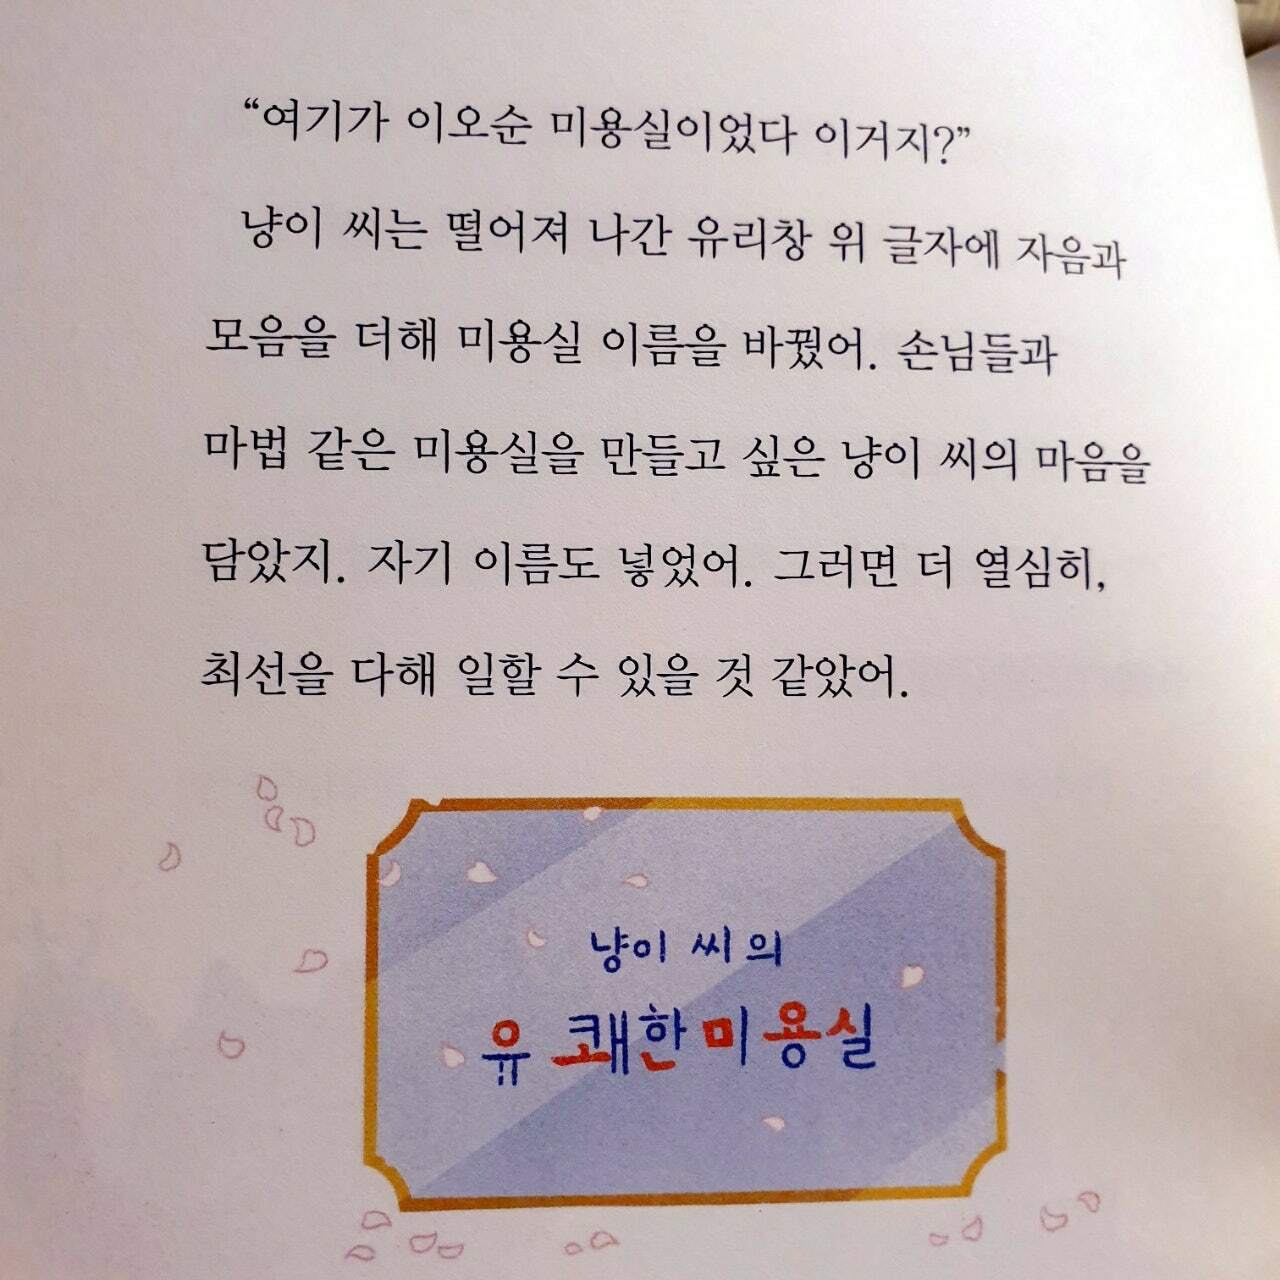 “여기가 이오순 미용실이었다 이거지?”
냥이 씨는 떨어져 나간 유리창 위 글자에 자음과
모음을 더해 미용실 이름을 바꿨어. 손님들과
마법 같은 미용실을 만들고 싶은 냥이 씨의 마음을
담았지. 자기 이름도 넣었어. 그러면 더 열심히,
최선을 다해 일할 수 있을 것 같았어.
냥이 씨의
유쾌한 미용실